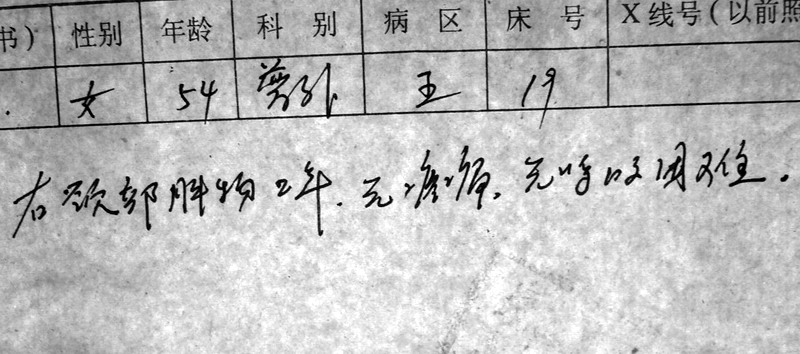 书） 性别 年龄 科 别 病 区 床 号 X线号（以前照
女 54 普外 王 19
右颈部肿物2年.无疼痛.无呼吸困难。